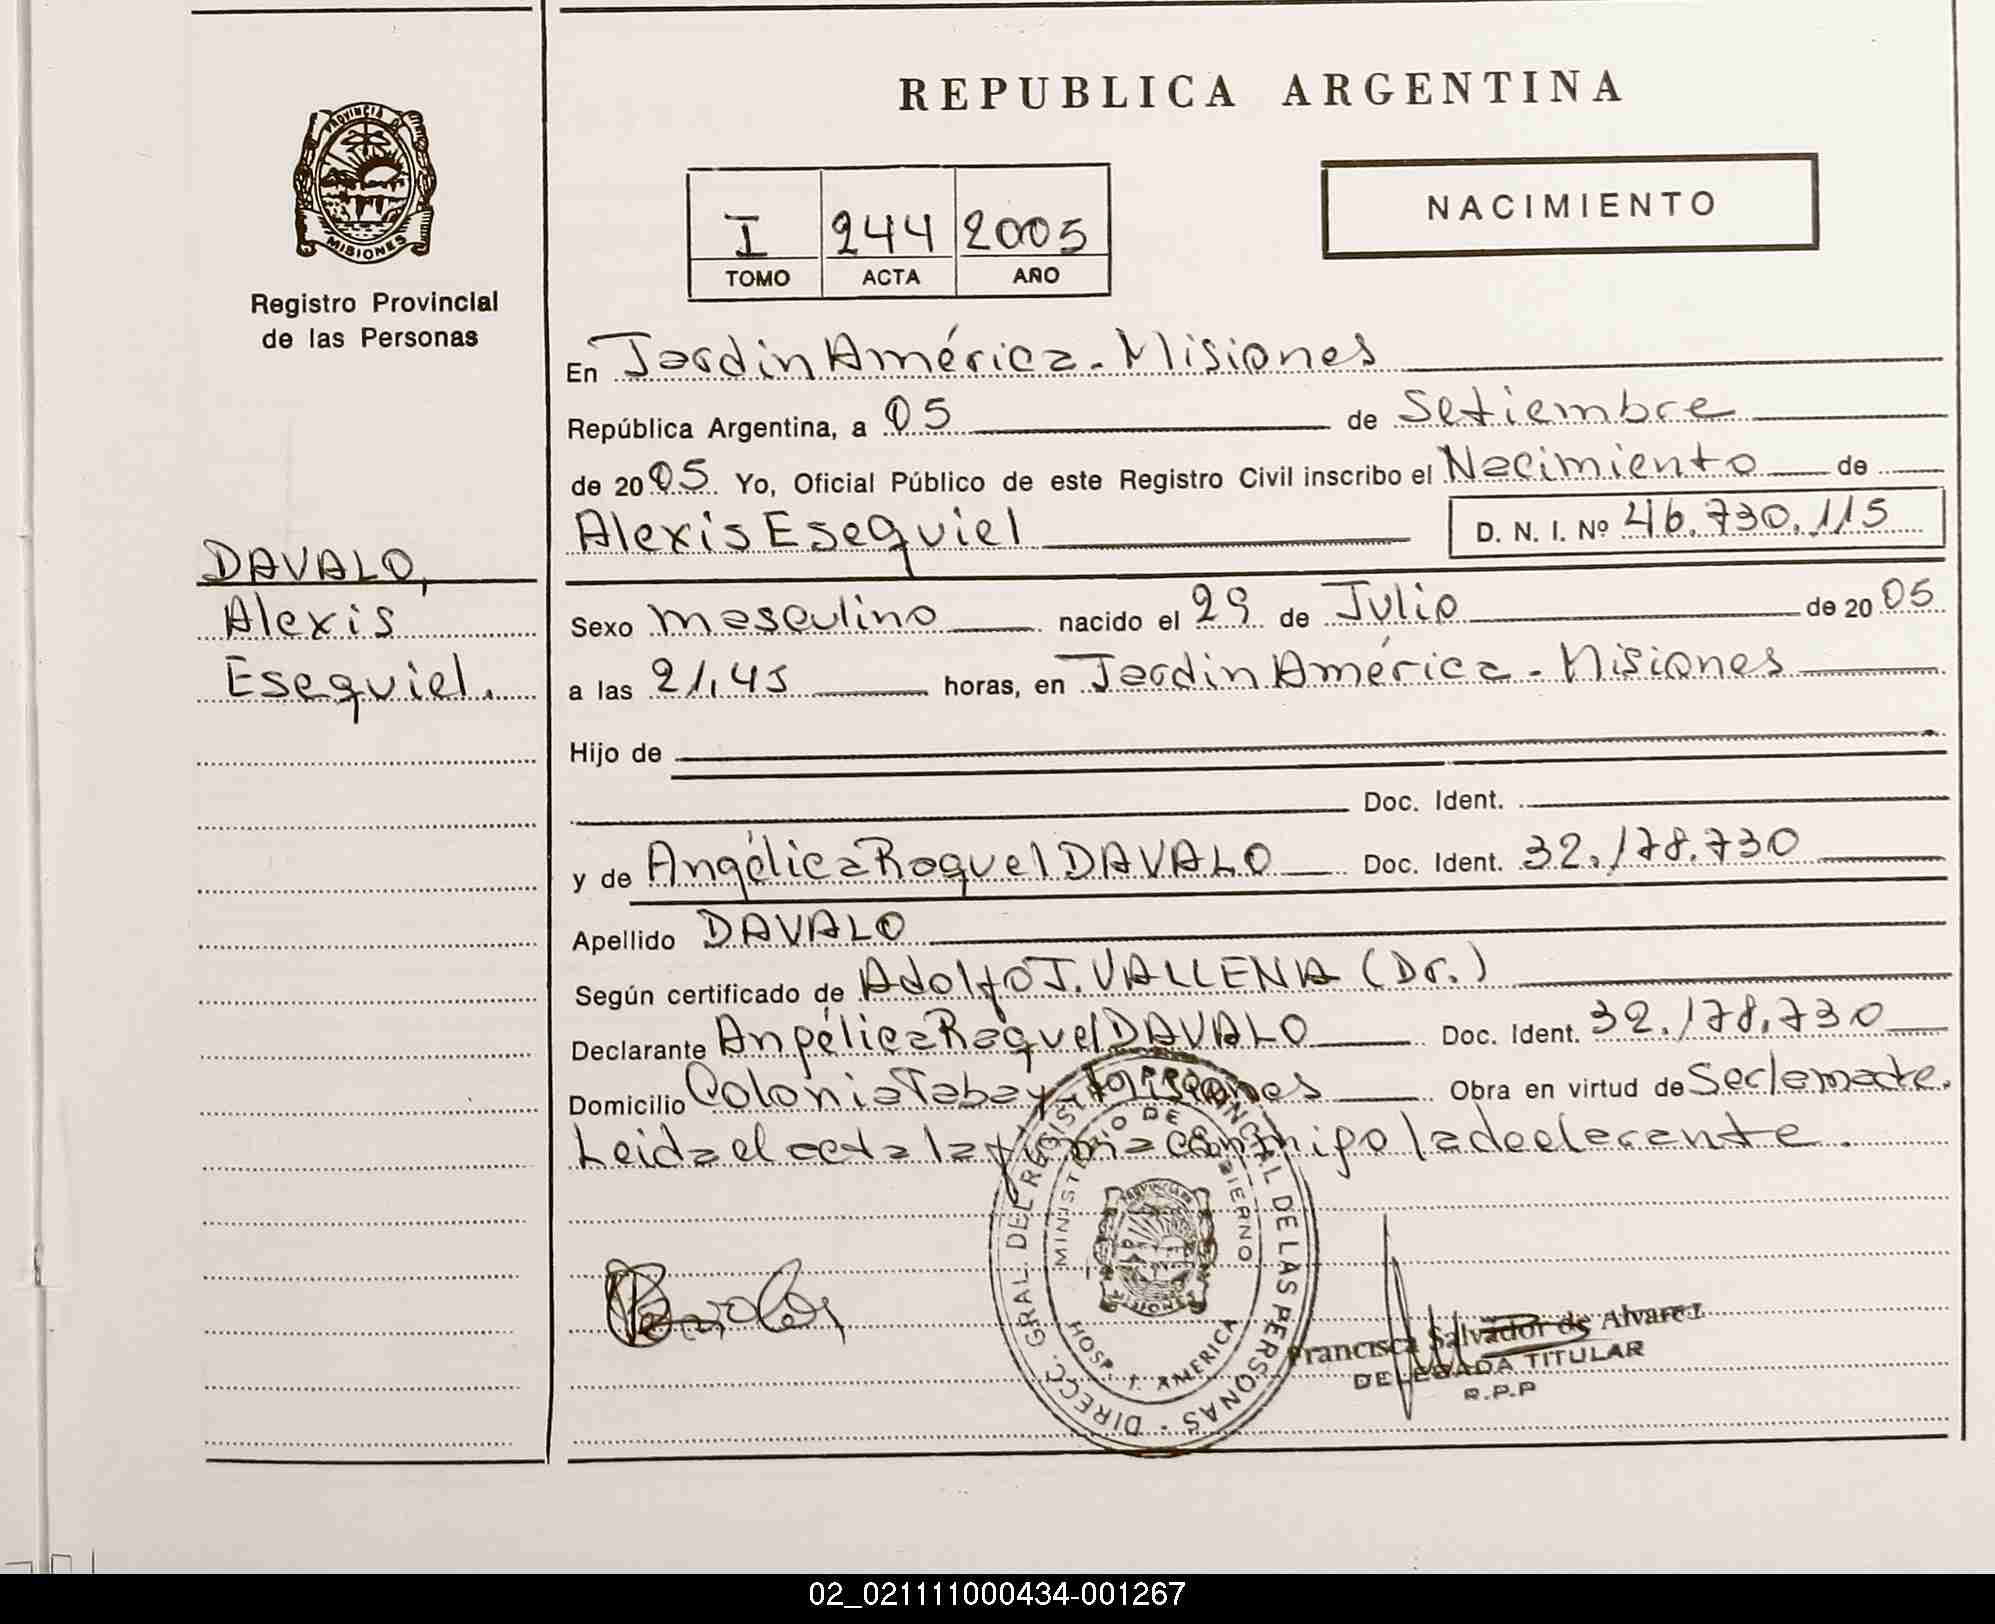 REPUBLICA ARGENTINA
PROVINCIA DE
MISIONES
Registro Provincial
de las Personas
I 244 2005
TOMO ACTA AÑO
NACIMIENTO
En Jardin América - Misiones
República Argentina, a 05 de Setiembre
de 2005 Yo, Oficial Público de este Registro Civil inscribo el Nacimiento de
Alexis Esequiel D. N. I. Nº 46.730.115
DAVALO,
Alexis
Esequiel.
Sexo masculino nacido el 29 de Julio de 2005
a las 21,45 horas, en Jardin América - Misiones
Hijo de
Doc. Ident.
y de Angélica Raquel DAVALO Doc. Ident. 32.178.730
Apellido DAVALO
Según certificado de Adolfo J. VALLENIA (Dr.)
Declarante Angélica Raquel DAVALO Doc. Ident. 32.178.730
Domicilio Colonia Tabay - Misiones Obra en virtud de Seclemade.
Leida el acta la firma conmigo la declarante.
DIRECC. GRAL. DEL REGISTRO PROVINCIAL DE LAS PERSONAS
MINISTERIO DE GOBIERNO
HOSP. J. AMERICA
Francisca Salvador de Alvarez
DELEGADA TITULAR
R.P.P
02_021111000434-001267